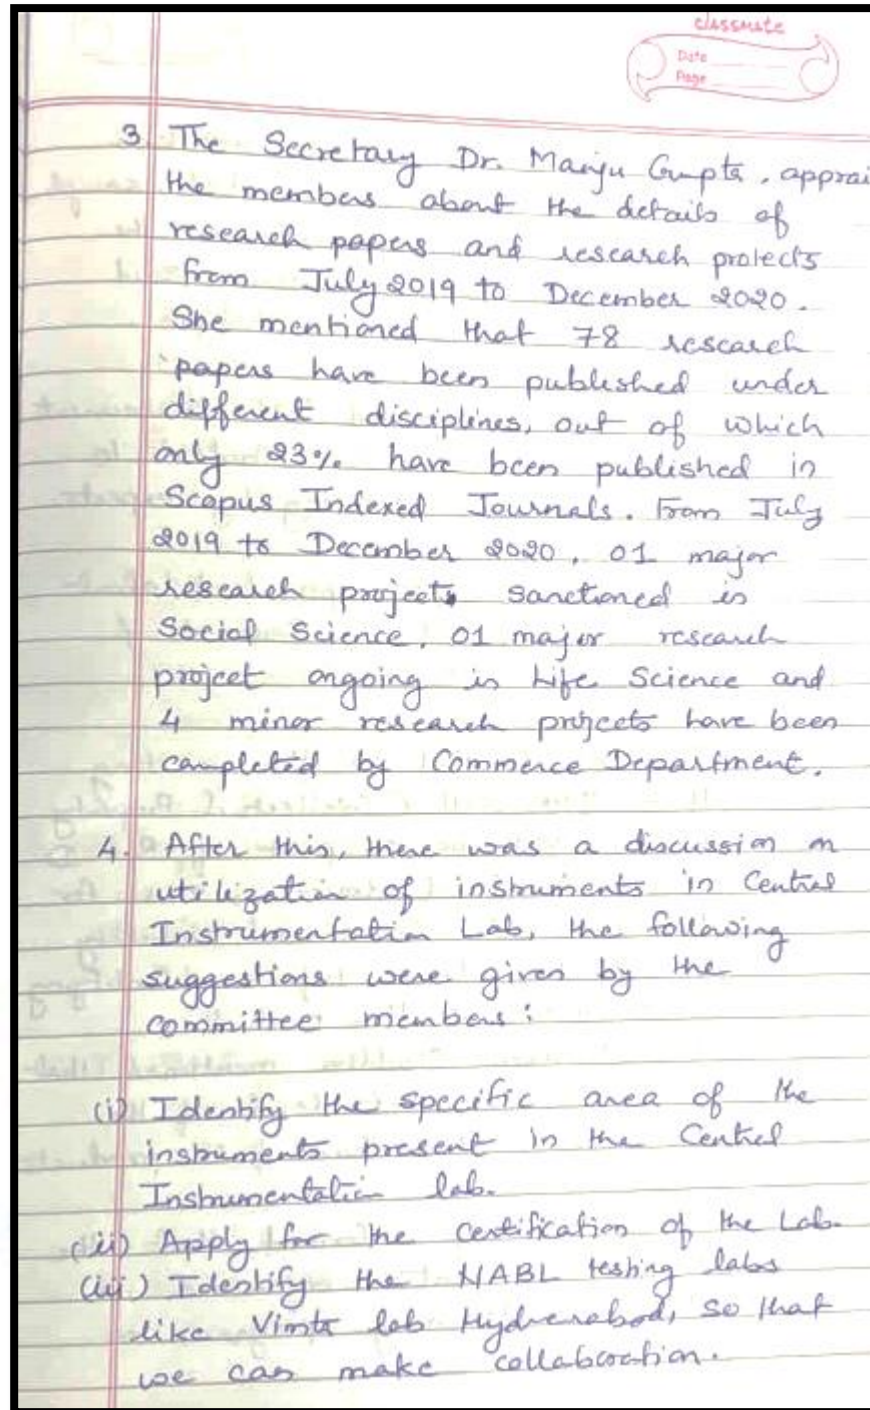 classmate
Date
Page
3. The Secretary Dr. Manju Gupta, apprai
the members about the details of
research papers and research protects
from July 2019 to December 2020.
She mentioned that 78 research
papers have been published under
different disciplines, out of which
only 23% have been published in
Scopus Indexed Journals. From July
2019 to December 2020, 01 major
research project sanctioned is
Social Science, 01 major research
project ongoing in Life Science and
4 minor research projects have been
completed by Commerce Department.
4. After this, there was a discussion on
utilization of instruments in Central
Instrumentation Lab, the following
suggestions were given by the
committee members:
(i) Identify the specific area of the
instruments present in the Central
Instrumentation lab.
(ii) Apply for the certification of the Lab.
(iii) Identify the NABL testing labs
like Vimta lab Hyderabad, so that
we can make collaboration.